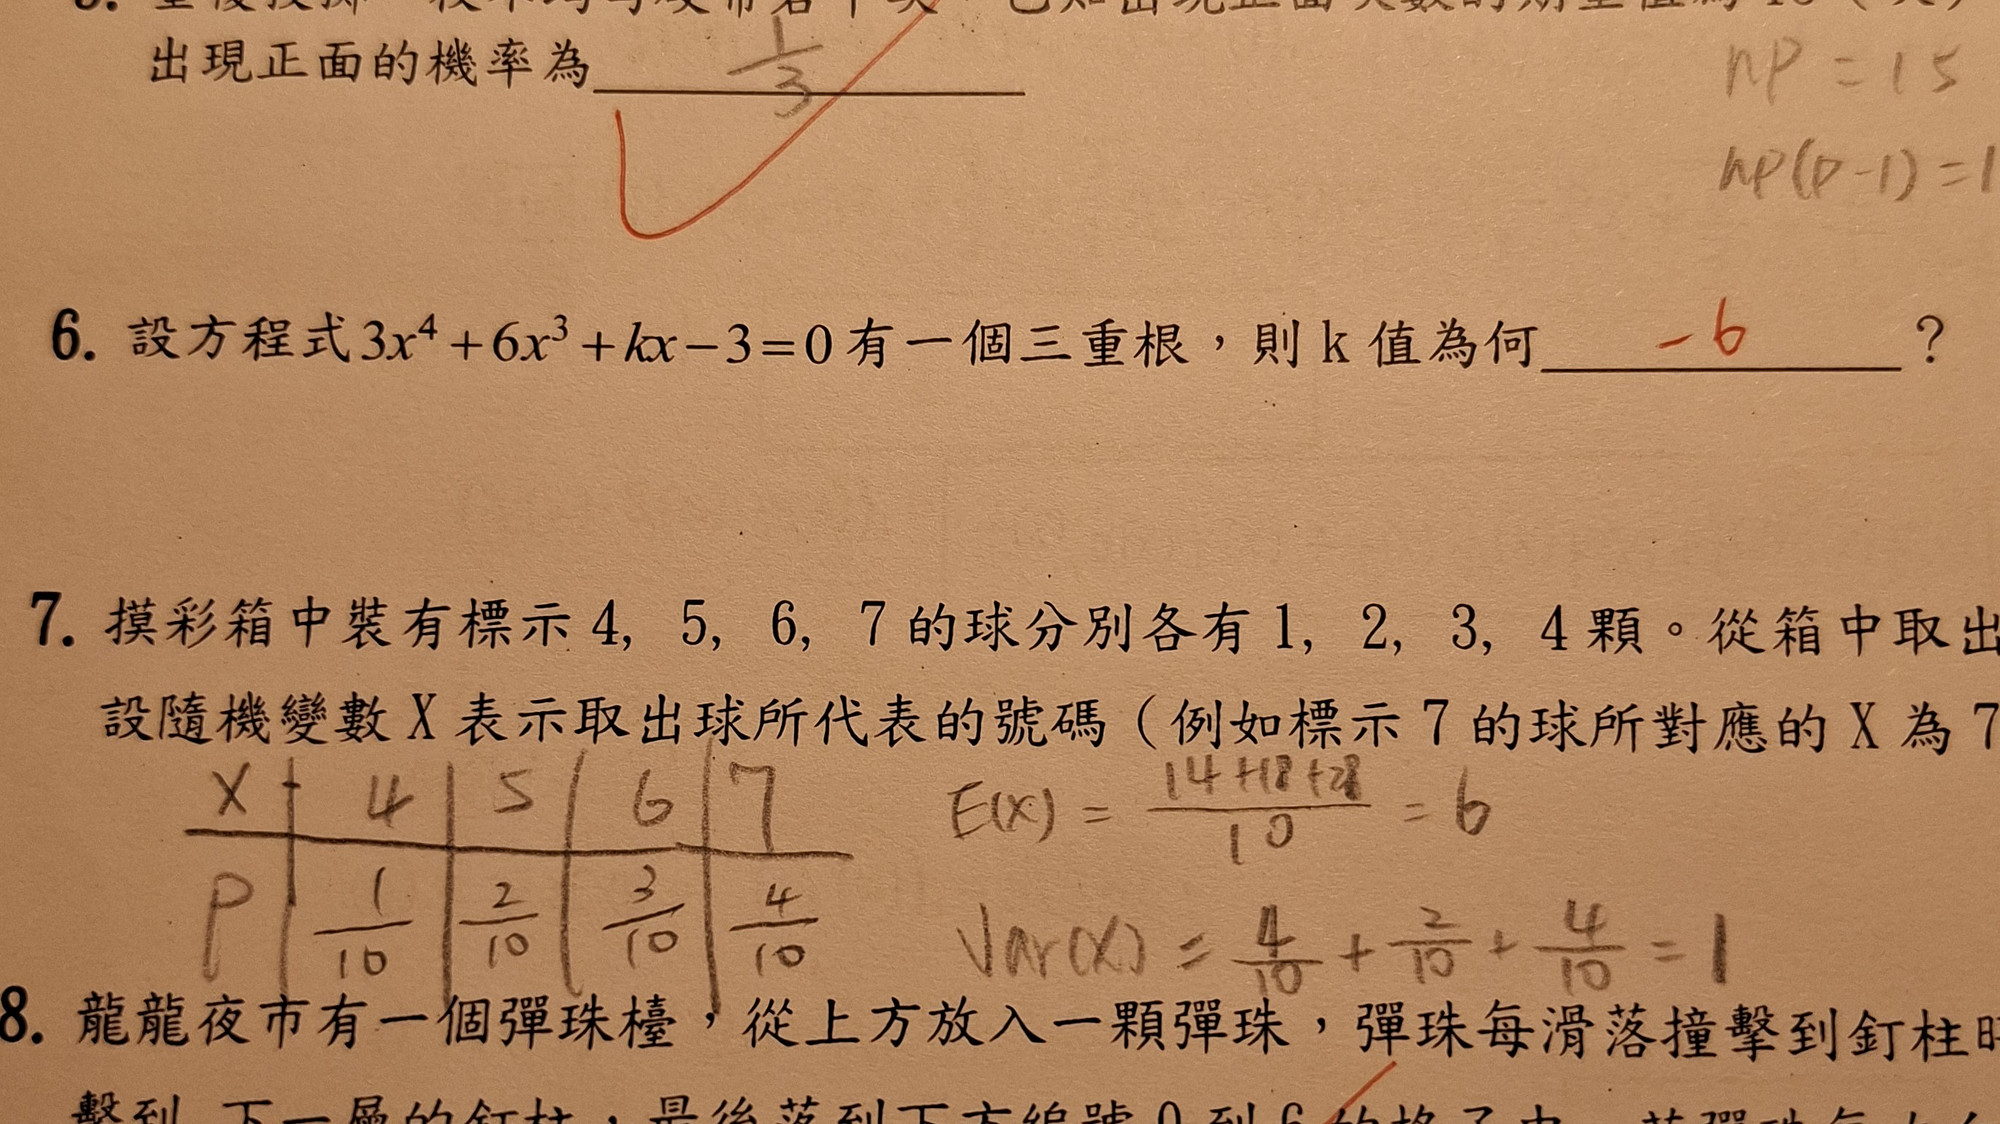 出現正面的機率為 1/3
np = 15
np(p-1) = 1
6. 設方程式 3x⁴ + 6x³ + kx − 3 = 0 有一個三重根，則 k 值為何 -6 ？
7. 摸彩箱中裝有標示 4, 5, 6, 7 的球分別各有 1, 2, 3, 4 顆。從箱中取出
設隨機變數 X 表示取出球所代表的號碼（例如標示 7 的球所對應的 X 為 7
X 4 5 6 7
P 1/10 2/10 3/10 4/10
E(x) = (14+18+28)/10 = 6
Var(x) = 4/10 + 2/10 + 4/10 = 1
8. 龍龍夜市有一個彈珠檯，從上方放入一顆彈珠，彈珠每滑落撞擊到釘柱時
擊到 下一層的釘柱，最後落到下方編號 0 到 6 的格子中